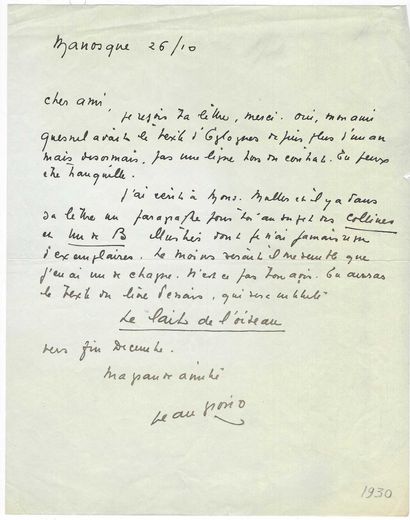 Manosque 26/10
cher ami,
je reçois ta lettre, merci. oui, mon ami
quesnel avait le texte d'Eglogues depuis plus d'un an
mais desormais, pas une ligne hors du contrat. Tu peux
etre tranquille.
J'ai ecrit à Mons. Muller et il y a dans
sa lettre un paragraphe pour toi au sujet des Collines
et un de B illustrés dont je n'ai jamais reçu
d'exemplaires. Le moins serait il me semble que
j'en ai un de chaque. N'est ce pas ton avis. Tu auras
le texte du livre d'essais, qui sera intitulé
Le lait de l'oiseau
vers fin Decembre.
Ma grande amitié
Jean Giono
1930